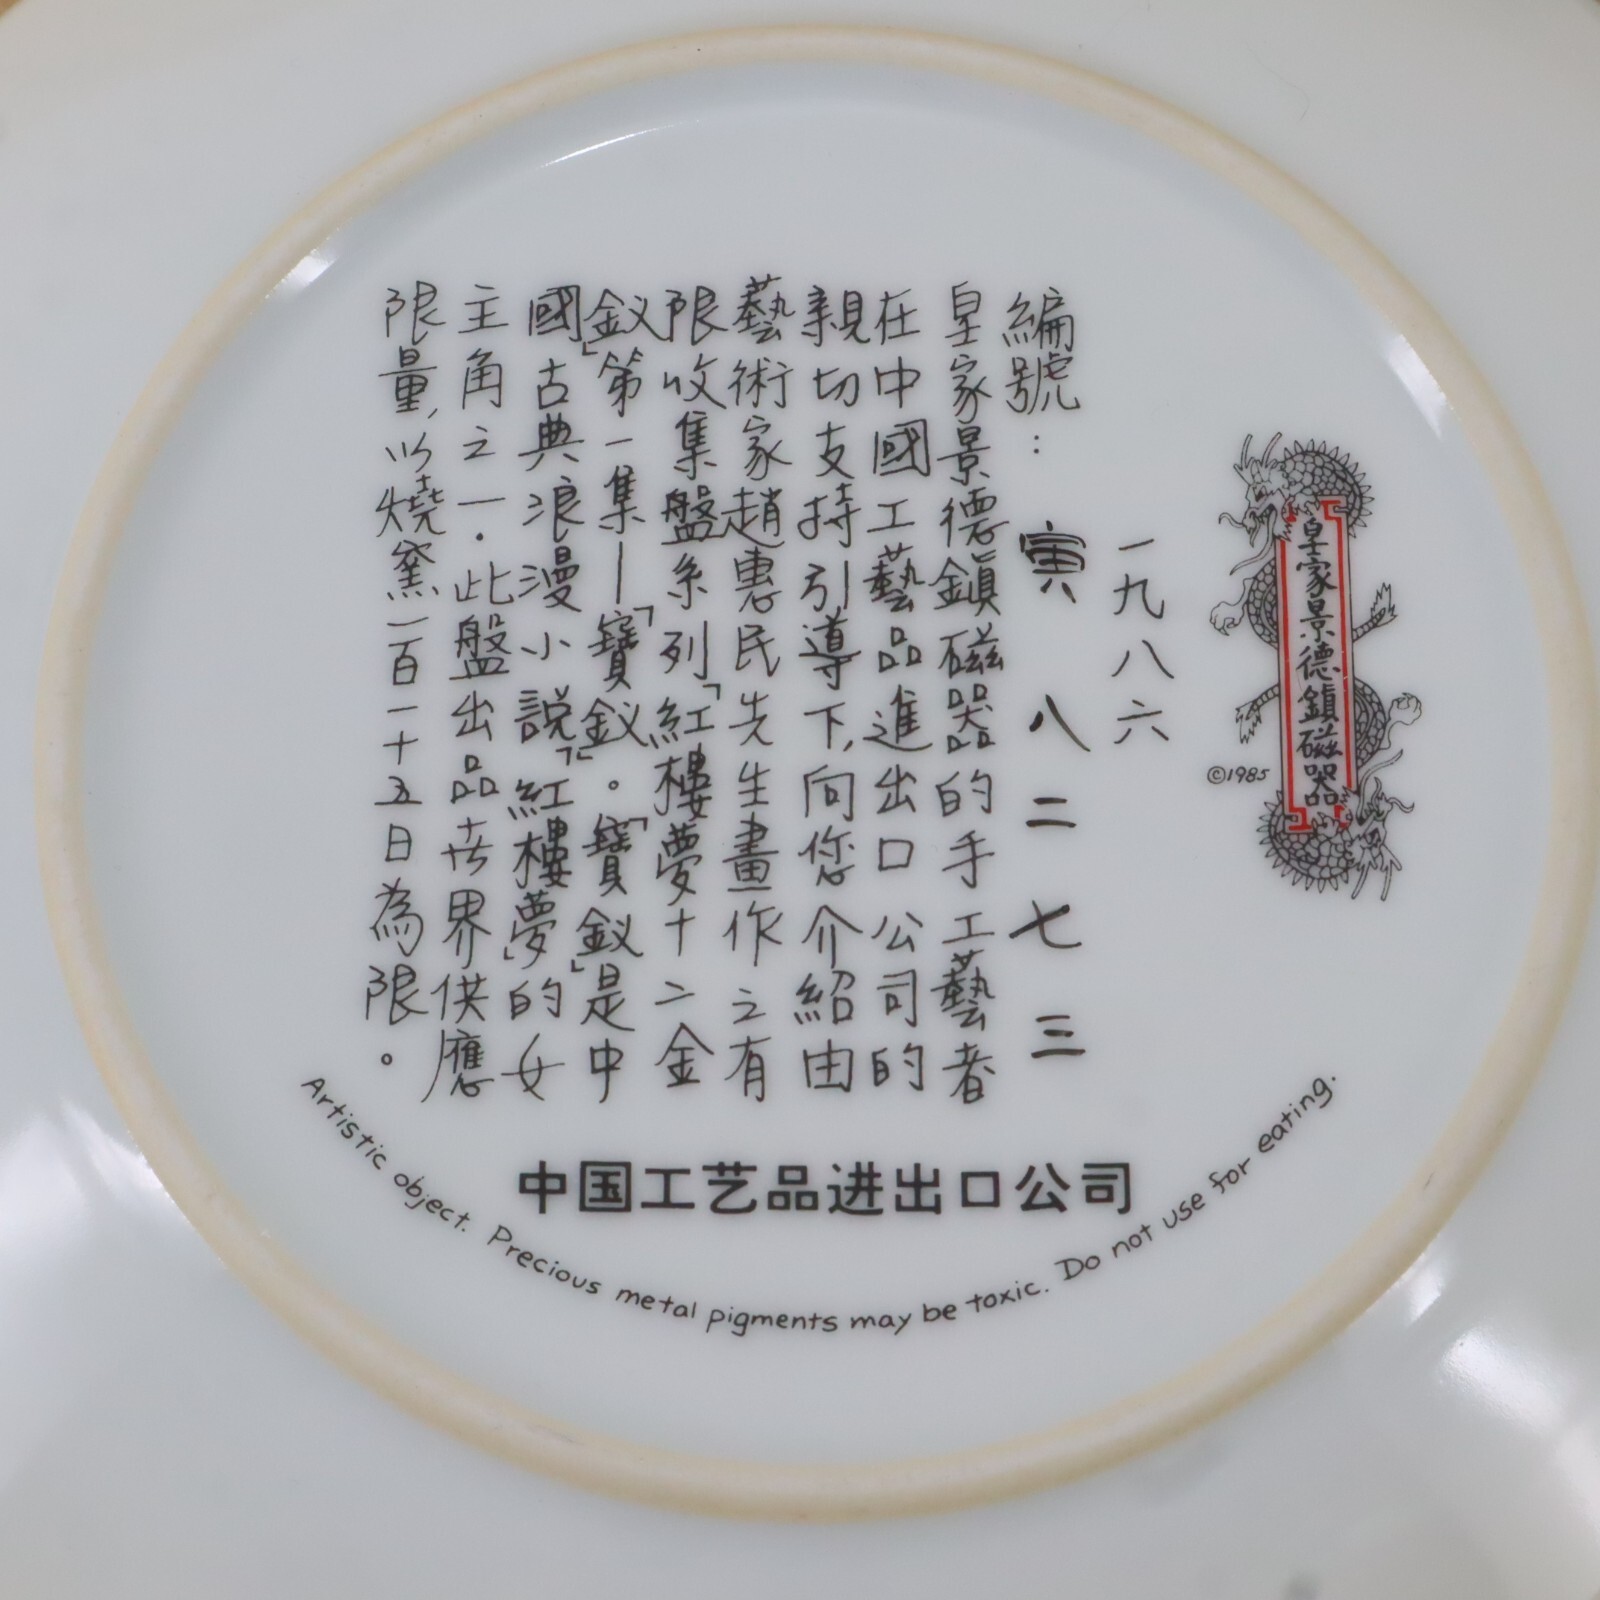 皇家景德鎮磁器
©1985
一九八六
編號：寅八二七三
皇家景德鎮磁器的手工藝者
在中國工藝品進出口公司的
親切支持引導下,向您介紹由
藝術家趙惠民先生畫作之有
限收集盤系列「紅樓夢十二金
釵」第一集—「寶釵」。「寶釵」是中
國古典浪漫小說「紅樓夢」的女
主角之一.此盤出品世界供應
限量,以燒窯一百一十五日為限。
中国工艺品进出口公司
Artistic object. Precious metal pigments may be toxic. Do not use for eating.